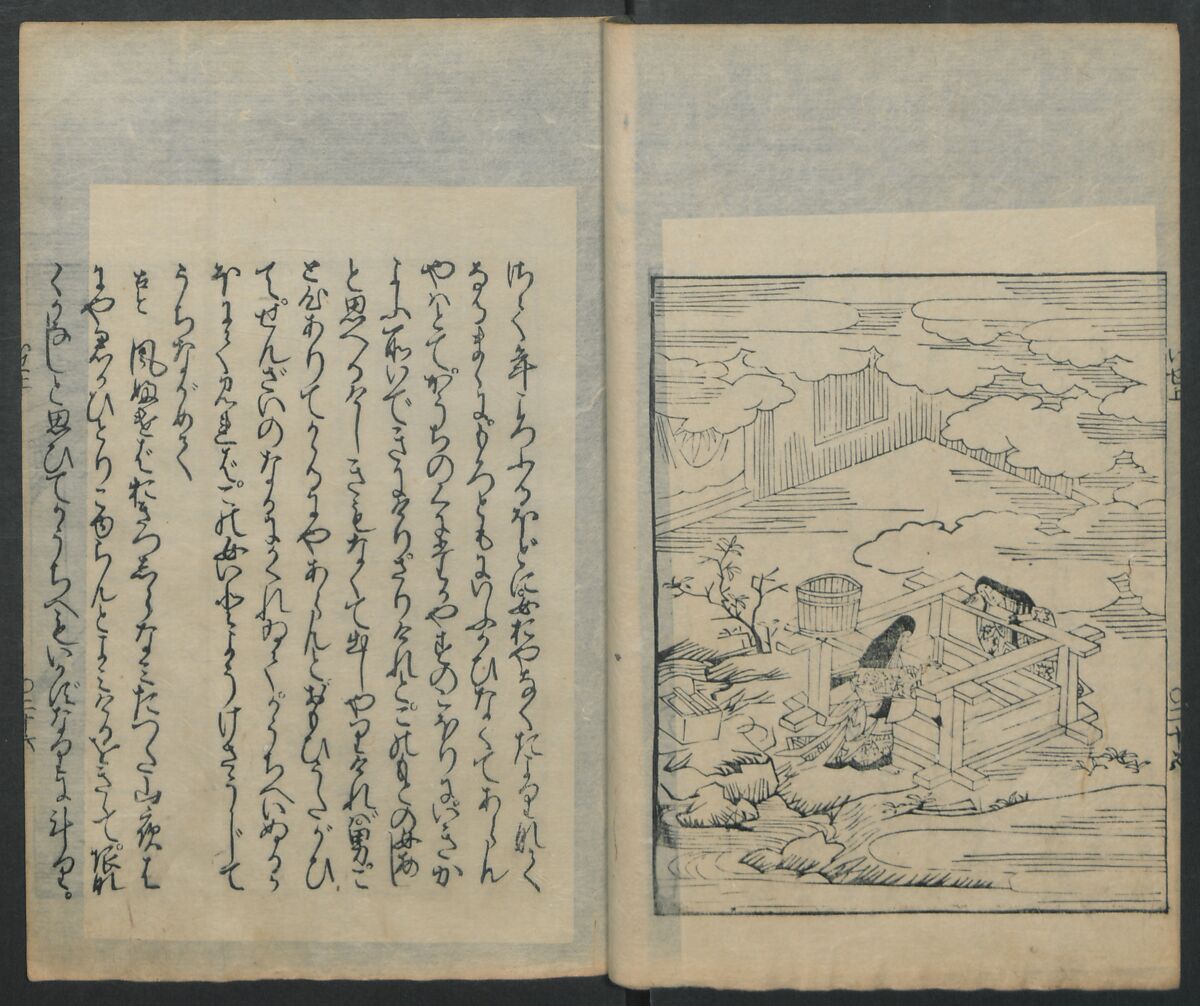 さて年ころふるほどに女おやなくたよりなく
なるまゝにもろともにいふかひなくてあらん
やはとてかうちのくにたかやすのこほりにいきか
よふ所いできにけりさりけれどこのもとの女あし
と思へるけしきもなくて出しやりければ男こ
と心ありてかゝるにやあらんとおもひうたがひ
てせんざいのなかにかくれゐてかうちへいぬるか
ほにてみればこの女いとようけさうじて
うちながめて
風吹ばおきつしらなみたつた山夜は
にや君がひとりこゆらんとよみけるをきゝて限な
くかなしと思ひてかうちへもいかずなりにけり。